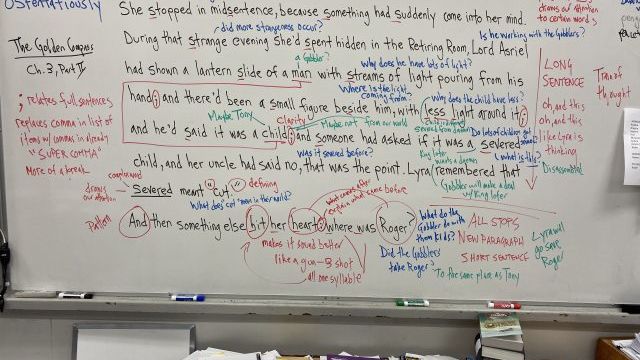 Ostentatiously
The Golden Compass
Ch. 3, Part II
; relates full sentences,
replaces comma in list of
items w/ commas in already
"SUPER COMMA"
More of a break
She stopped in midsentence, because something had suddenly come into her mind.
did more strangeness occur?
Is he working with the Gobblers?
During that strange evening she'd spent hidden in the Retiring Room, Lord Asriel
a Gobbler?
Why does he have lots of light?
had shown a lantern slide of a man with streams of light pouring from his
Where is the light
coming from?
Why does the child have less?
hand; and there'd been a small figure beside him, with less light around it;
Maybe Tony
Clarity
Maybe not from our world
and he'd said it was a child; and someone had asked if it was a severed
was it severed before?
what is this?
child, and her uncle had said no, that was the point. Lyra remembered that
draws
our attention
Severed meant "cut."
defining
What does "cut" mean in their world?
what comes after
explains what came before
Gobbler will make a deal
w/ King later
Pattern
And then something else hit her heart: where was Roger?
makes it sound better
like a gun-B shot
all one syllable
What do the
Gobbler do with
them kids?
Did the Gobblers
take Roger?
ALL STOPS
NEW PARAGRAPH
SHORT SENTENCE
To the same place as Tony
Lyra will
go save
Roger
LONG
SENTENCE
oh, and this
oh, and this
like Lyra is
thinking
Train of
thought
draws our attention
to certain words